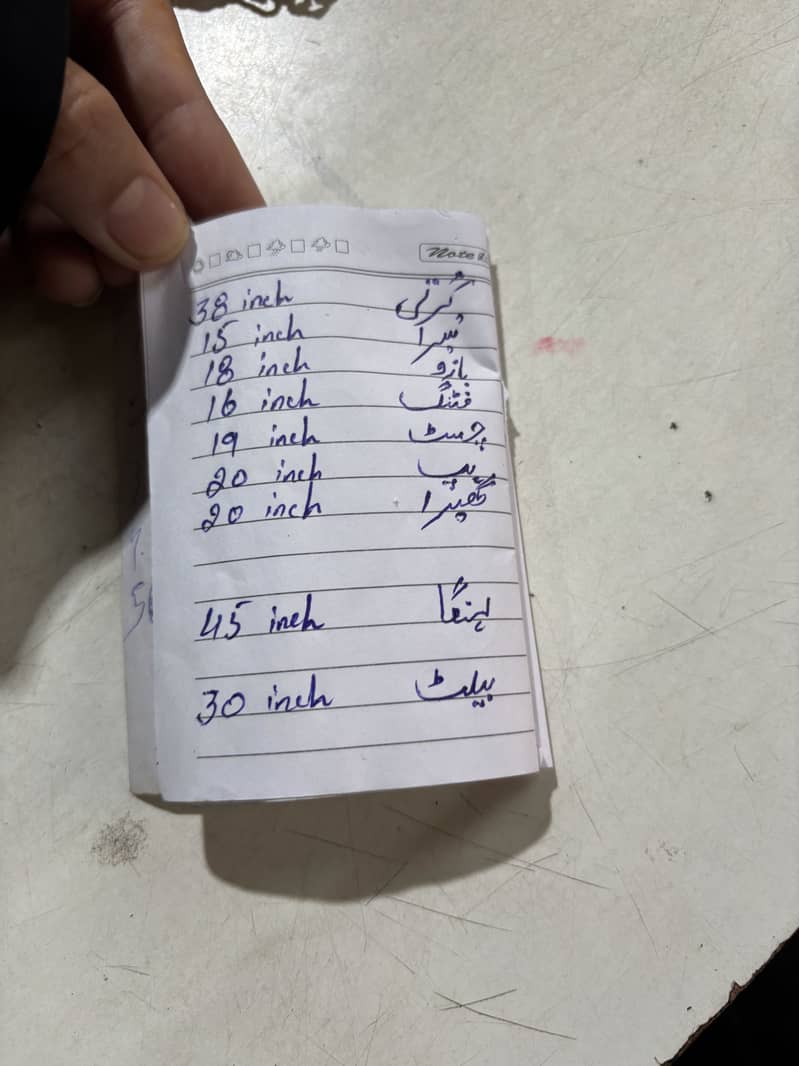 Note
کُرتی 38 inch
تیرا 15 inch
بازو 18 inch
فٹنگ 16 inch
چسٹ 19 inch
ہپ 20 inch
گھیرا 20 inch
لہنگا 45 inch
بیلٹ 30 inch